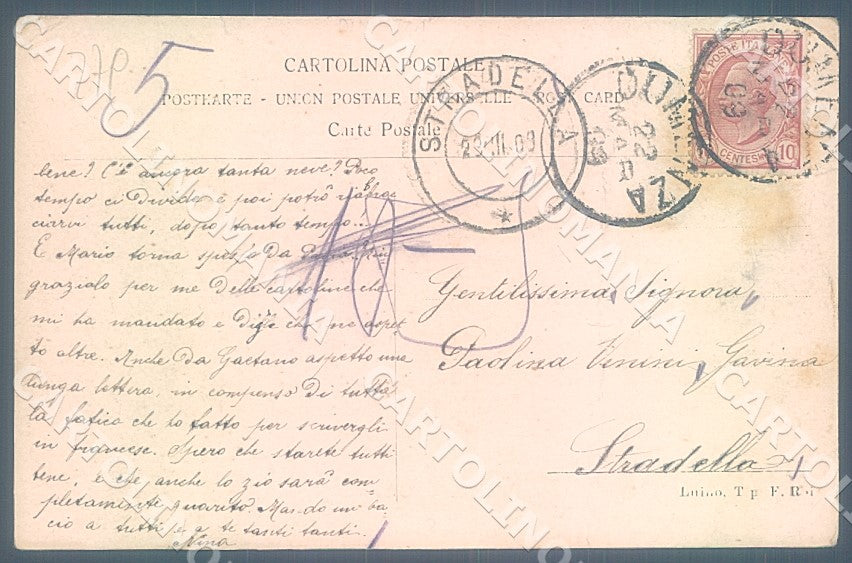 5
CARTOLINA POSTALE
POSTKARTE - UNION POSTALE UNIVERSELLE - POST CARD
Carte Postale
STRADELLA
23.III.09
22
MAR
09
POSTE ITALIANE
CENTESIMI 10
bene? C'è ancora tanta neve? Poco
tempo ci divide e poi potrò abbrac
ciarvi tutti, dopo tanto tempo!
E Mario torna spesso da Rin
grazialo per me delle cartoline che
mi ha mandato e digli che ne aspet
to altre. Anche da Gaetano aspetto una
lunga lettera, in compenso di tutta
la fatica che ho fatto per scrivergli
in francese. Spero che starete tutti
bene, e che anche lo zio sarà com
pletamente guarito. Mando un ba
cio a tutti e a te tanti tanti.
Nina
10
Gentilissima Signora
Paolina Venini Gavina
Stradella
Luino, Tip. F.
CARTOLINOMANIA